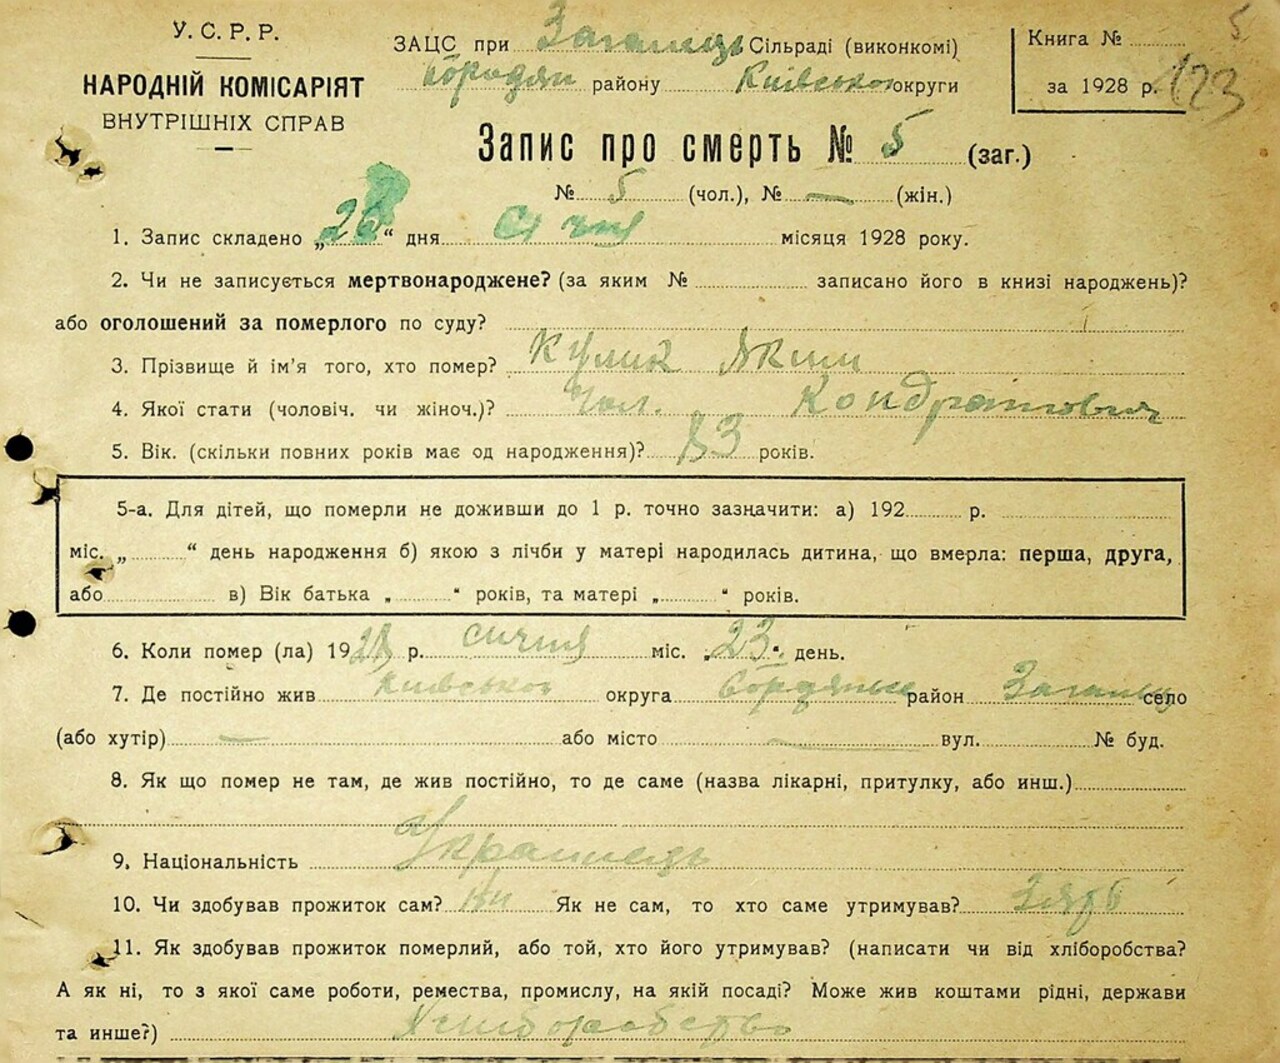 У. С. Р. Р.
НАРОДНІЙ КОМІСАРІЯТ
ВНУТРІШНІХ СПРАВ
ЗАЦС при Загальць Сільраді (виконкомі)
Бородян району Київської округи
Книга № 5
за 1928 р. 123
Запис про смерть № 5 (заг.)
№ 5 (чол.), № — (жін.)
1. Запис складено „28“ дня Січня місяця 1928 року.
2. Чи не записується мертвонароджене? (за яким № записано його в книзі народжень)?
або оголошений за померлого по суду?
3. Прізвище й ім'я того, хто помер? Кулик Яким
4. Якої стати (чоловіч. чи жіноч.)? Чол. Кондратович
5. Вік. (скільки повних років має од народження)? 83 років.
5-а. Для дітей, що померли не доживши до 1 р. точно зазначити: а) 192 р.
міс. „ “ день народження б) якою з лічби у матері народилась дитина, що вмерла: перша, друга,
або в) Вік батька „ “ років, та матері „ “ років.
6. Коли помер (ла) 1928 р. січня міс. „23“ день.
7. Де постійно жив Київської округа район село
(або хутір) — або місто — вул. № буд.
8. Як що помер не там, де жив постійно, то де саме (назва лікарні, притулку, або инш.)
9. Національність Украинець
10. Чи здобував прожиток сам? Ні Як не сам, то хто саме утримував? Зять
11. Як здобував прожиток померлий, або той, хто його утримував? (написати чи від хліборобства?
А як ні, то з якої саме роботи, ремества, промислу, на якій посаді? Може жив коштами рідні, держави
та инше?) Хлиборобство